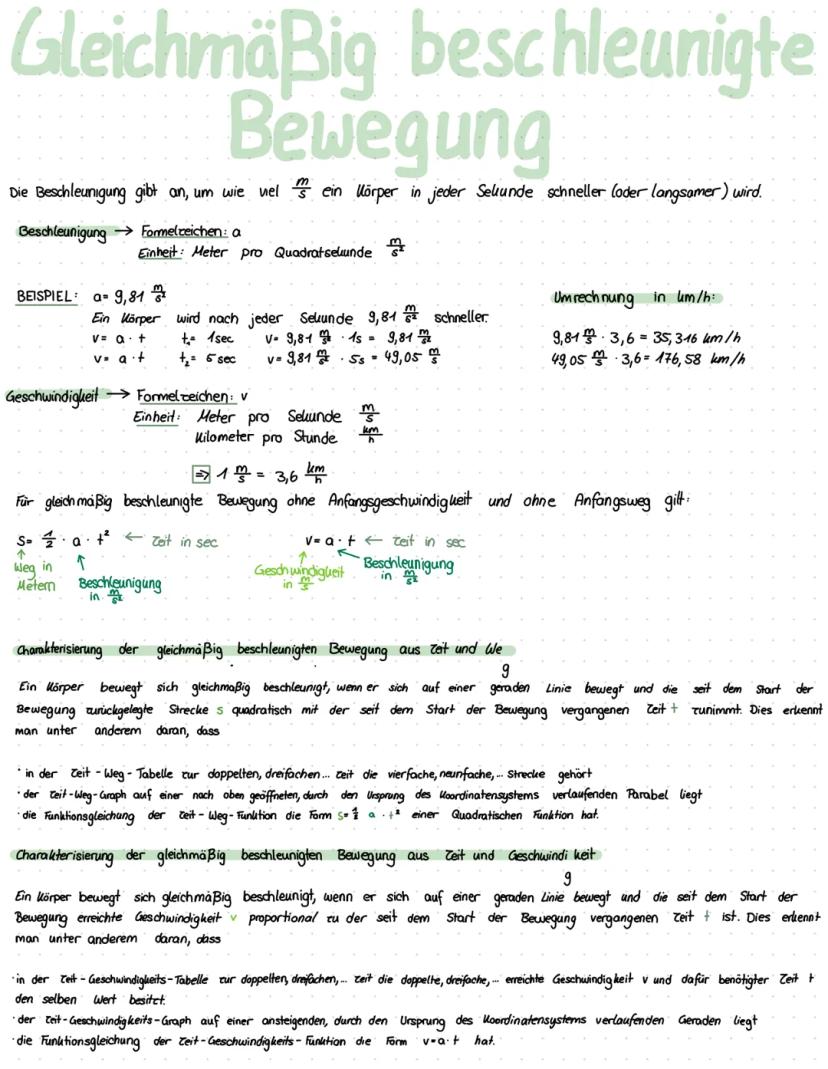 Gleichmäßig beschleunigte
Bewegung
Die Beschleunigung gibt an, um wie viel m/s ein Körper in jeder Sekunde schneller (oder langsamer) wird.
Beschleunigung → Formelzeichen: a
Einheit: Meter pro Quadratsekunde m/s²
BEISPIEL: a= 9,81 m/s²
Umrechnung in km/h:
Ein Körper wird nach jeder Sekunde 9,81 m/s² schneller.
v= a · t t₁= 1sec v= 9,81 m/s² · 1s = 9,81 m/s² 9,81 m/s · 3,6 = 35,316 km/h
v= a · t t₂= 5sec v= 9,81 m/s² · 5s = 49,05 m/s 49,05 m/s · 3,6= 176,58 km/h
Geschwindigkeit → Formelzeichen: v
Einheit: Meter pro Sekunde m/s
Kilometer pro Stunde km/h
⇒ 1 m/s = 3,6 km/h
Für gleichmäßig beschleunigte Bewegung ohne Anfangsgeschwindigkeit und ohne Anfangsweg gilt:
s= 1/2 · a · t² ← Zeit in sec v= a · t ← Zeit in sec
↑ Weg in Metern ↑ Beschleunigung in m/s² ↑ Geschwindigkeit in m/s Beschleunigung in m/s²
Charakterisierung der gleichmäßig beschleunigten Bewegung aus Zeit und We
g
Ein Körper bewegt sich gleichmäßig beschleunigt, wenn er sich auf einer geraden Linie bewegt und die seit dem Start der
Bewegung zurückgelegte Strecke s quadratisch mit der seit dem Start der Bewegung vergangenen Zeit t zunimmt. Dies erkennt
man unter anderem daran, dass
· in der Zeit-Weg-Tabelle zur doppelten, dreifachen... Zeit die vierfache, neunfache,... Strecke gehört
· der Zeit-Weg-Graph auf einer nach oben geöffneten, durch den Ursprung des Koordinatensystems verlaufenden Parabel liegt
· die Funktionsgleichung der Zeit-Weg-Funktion die Form s= 1/2 a · t² einer Quadratischen Funktion hat.
Charakterisierung der gleichmäßig beschleunigten Bewegung aus Zeit und Geschwindi keit
g
Ein Körper bewegt sich gleichmäßig beschleunigt, wenn er sich auf einer geraden Linie bewegt und die seit dem Start der
Bewegung erreichte Geschwindigkeit v proportional zu der seit dem Start der Bewegung vergangenen Zeit t ist. Dies erkennt
man unter anderem daran, dass
· in der Zeit-Geschwindigkeits-Tabelle zur doppelten, dreifachen,... Zeit die doppelte, dreifache,... erreichte Geschwindigkeit v und dafür benötigter Zeit t
den selben Wert besitzt.
· der Zeit-Geschwindigkeits-Graph auf einer ansteigenden, durch den Ursprung des Koordinatensystems verlaufenden Geraden liegt
· die Funktionsgleichung der Zeit-Geschwindigkeits-Funktion die Form v=a·t hat.